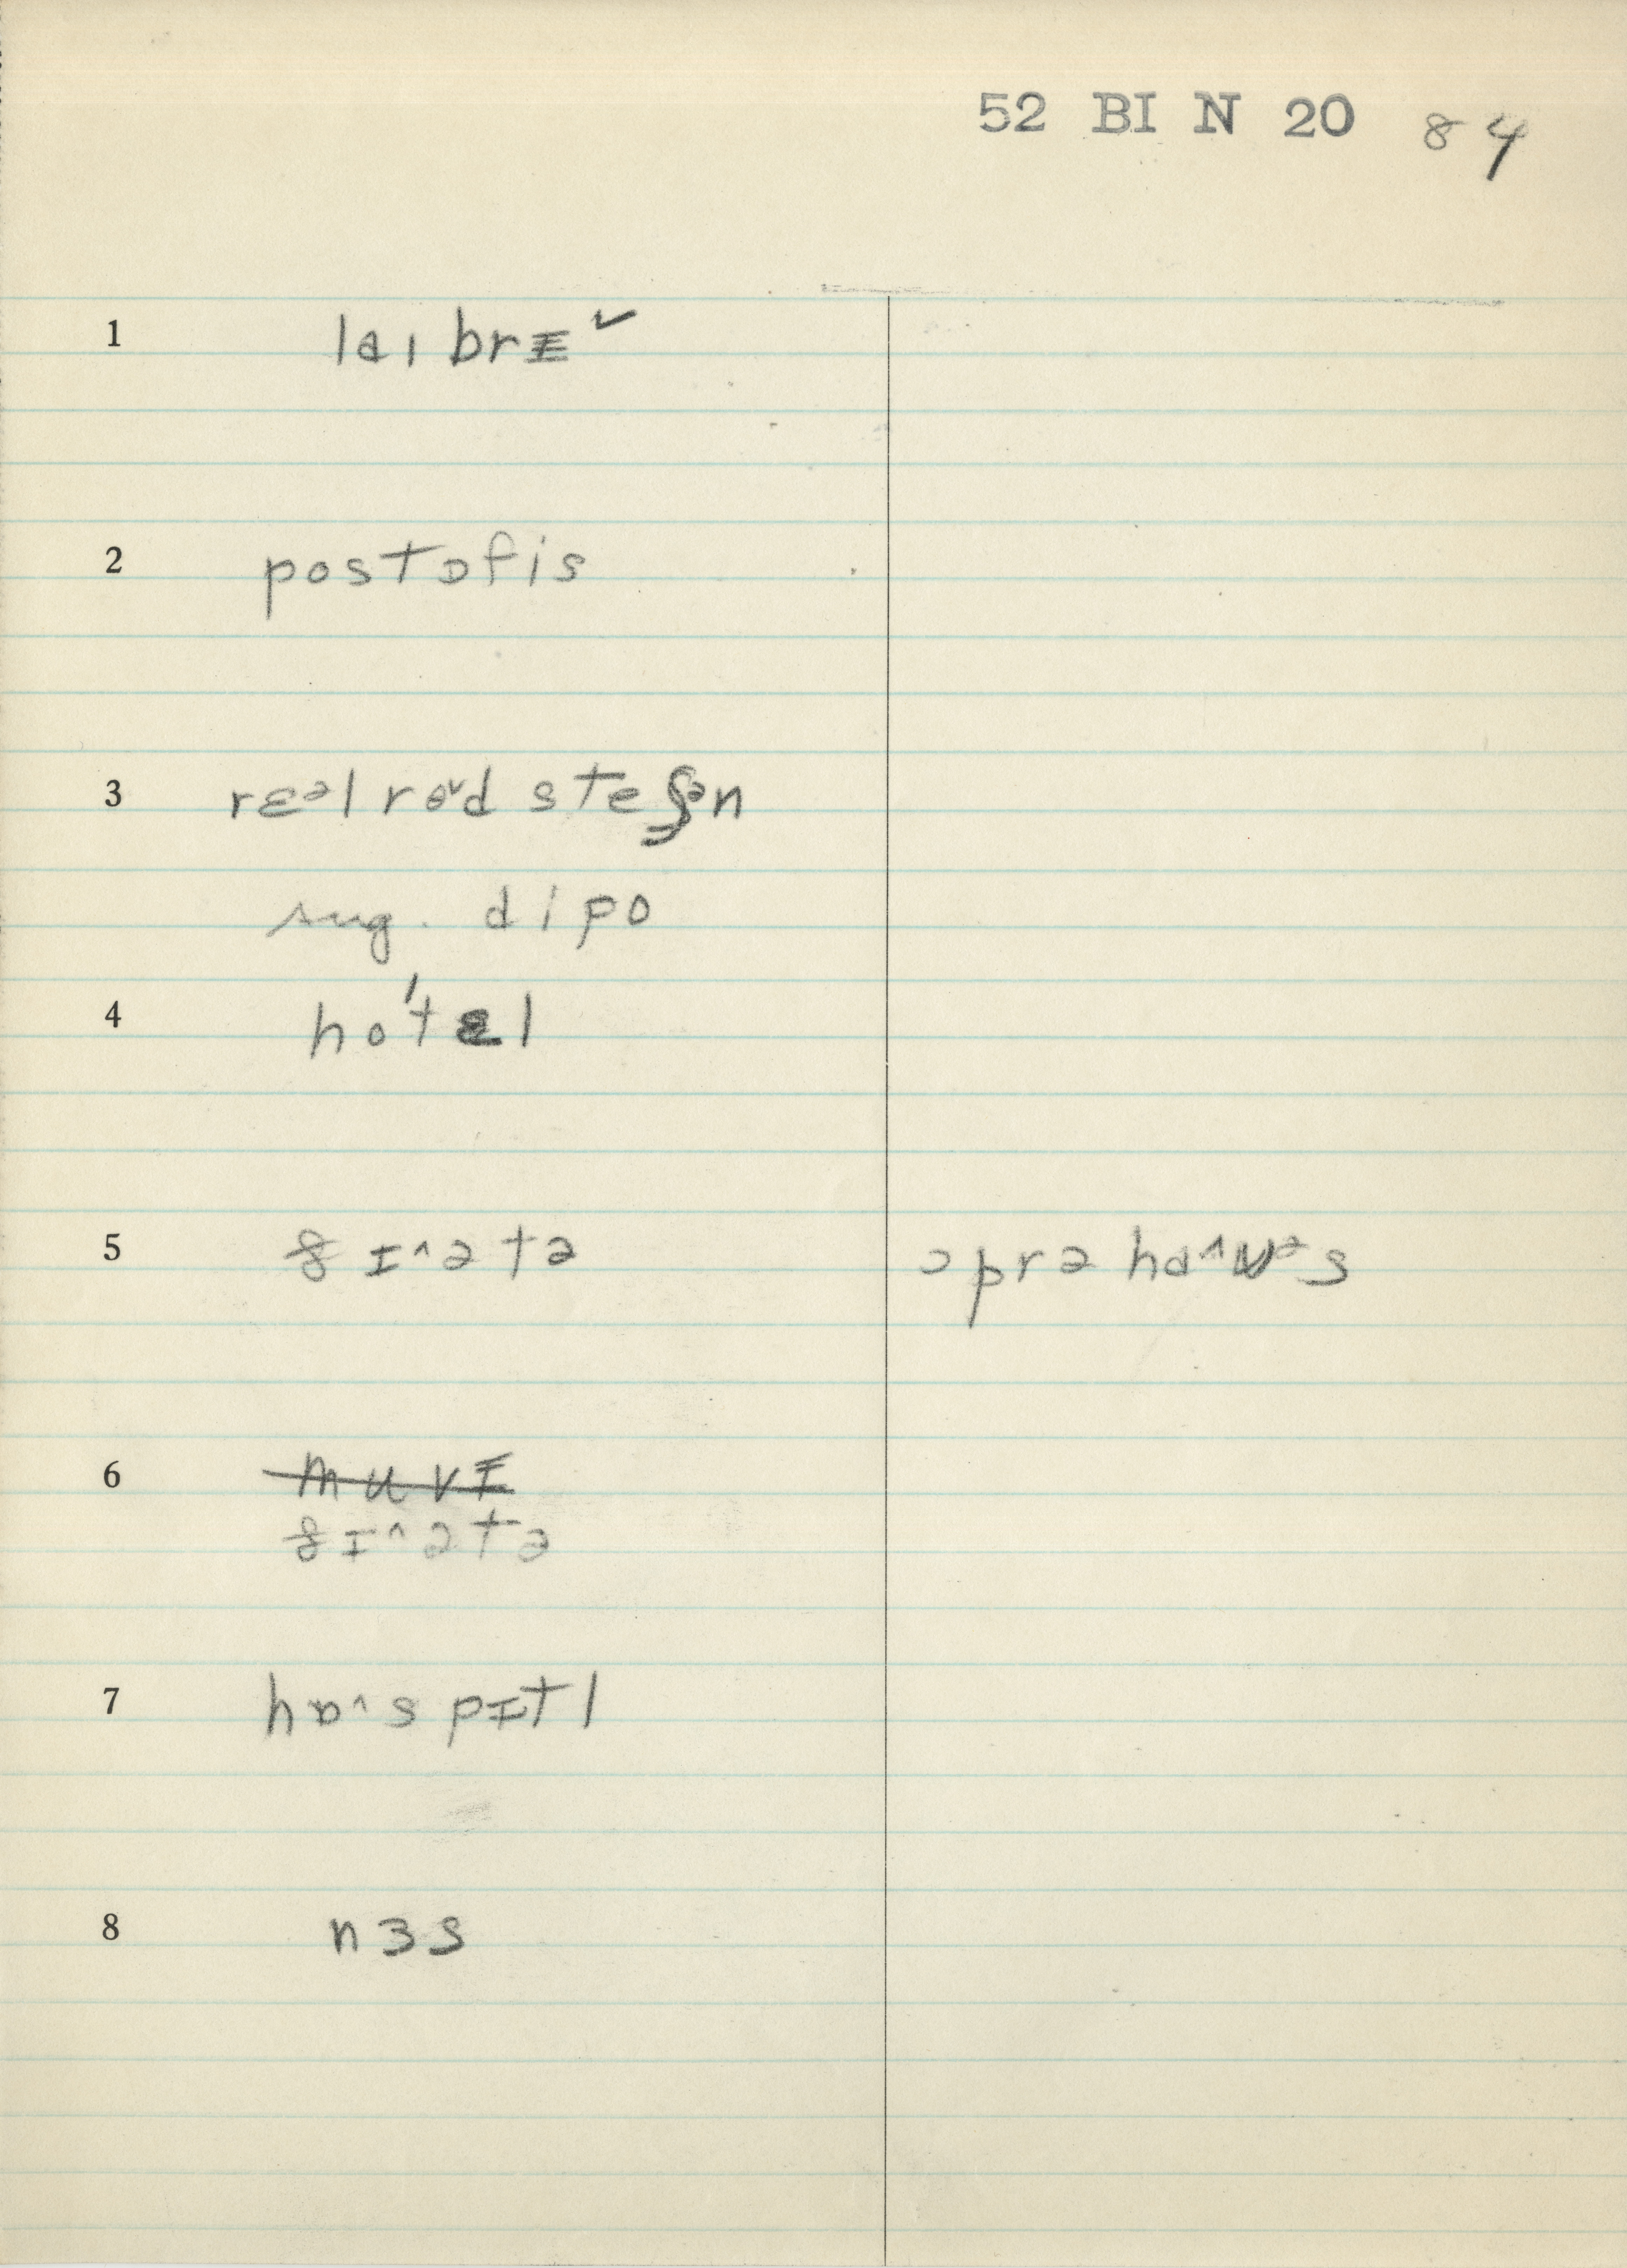 52 BI N 20 84
1 laɪbrɪ˅
2 postɒfis
3 rɛᵊl roᵛd steʃᵊn
sug. dipo
4 ho'tɛl
5 θɪ^ətə ɔprə ha^ʊᵊs
6 muvɪ
θɪ^ətə
7 hɒ^spɪtl
8 nɜs